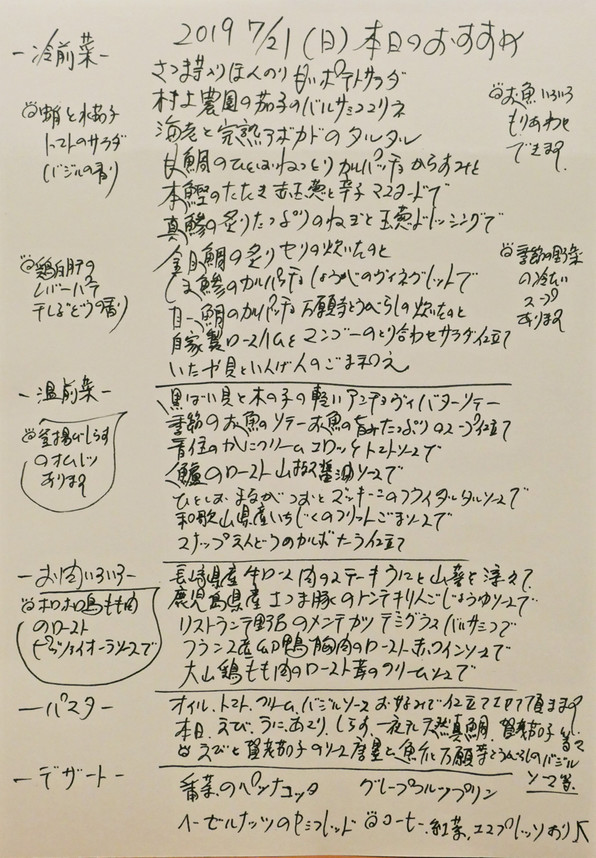 2019 7/21 (日) 本日のおすすめ
ー冷前菜ー
さつま芋入りほんのり甘いポテトサラダ
村上農園の茄子のバルサミコマリネ
海老と完熟アボカドのタルタル
真鯛のひとしおねっとりカルパッチョからすみと
本鰹のたたき 赤玉葱と辛子マスタードで
真鯵の炙りたっぷりのねぎと玉葱ドレッシングで
金目鯛の炙り セリの炊いたのと
しま鯵のカルパッチョ しょうがのヴィネグレットで
鯛のカルパッチョ 万願寺とうがらしの炊いたのと
自家製ロースハムとマンゴーのとり合わせサラダ仕立て
いたや貝といんげんのごま和え
と水茄子
トマトのサラダ
バジルの香り
鶏白肝の
レバーパテ
干しぶどうの香り
お魚いろいろ
もりあわせ
できます。
季節の野菜
の冷たい
スープ
あります
ー温前菜ー
黒ばい貝と木の子の軽いアンチョヴィバターソテー
季節のお魚のソテーお魚の旨みたっぷりのスープ仕立て
のかにクリームコロッケトマトソースで
のロースト 山椒醤油ソースで
ひとしお まながつおとズッキーニのフライタルタルソースで
和歌山県産いちじくのフリットごまソースで
スナップえんどうのカルボナーラ仕立て
釜揚げしらす
のオムレツ
あります
ーお肉いろいろー
長崎県産牛ロース肉のステーキうにと山葵を添えて
鹿児島県産さつま豚のトンテキりんごしょうゆソースで
リストランテ野呂のメンチカツ デミグラスバルサミコで
フランス産 鴨胸肉のロースト赤ワインソースで
大山鶏もも肉のロースト茸のクリームソースで
ホロホロ鳥もも肉
のロースト
ソースで
ーパスター
オイル、トマト、クリーム、バジルソース お好みで仕立てさせて頂きます
本日、えび、うに、あさり、しらす、一夜干し天然真鯛、賀茂茄子
えびと賀茂茄子の と万願寺とうがらしのバジル
ソース等
ーデザートー
番茶のパンナコッタ グレープフルーツプリン
ヘーゼルナッツのセミフレッド コーヒー、紅茶、エスプレッソあり